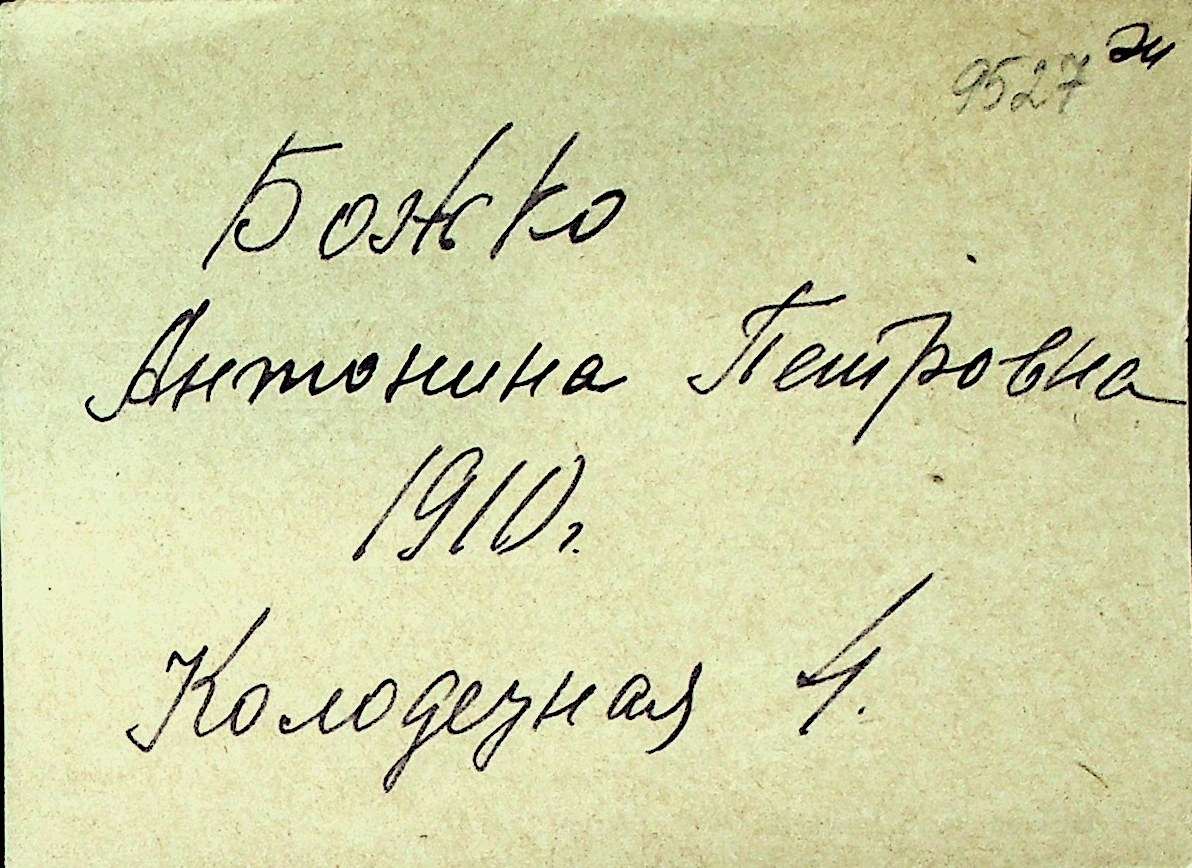 9527
Божко
Антонина Петровна
1910г.
Колодезная 4.